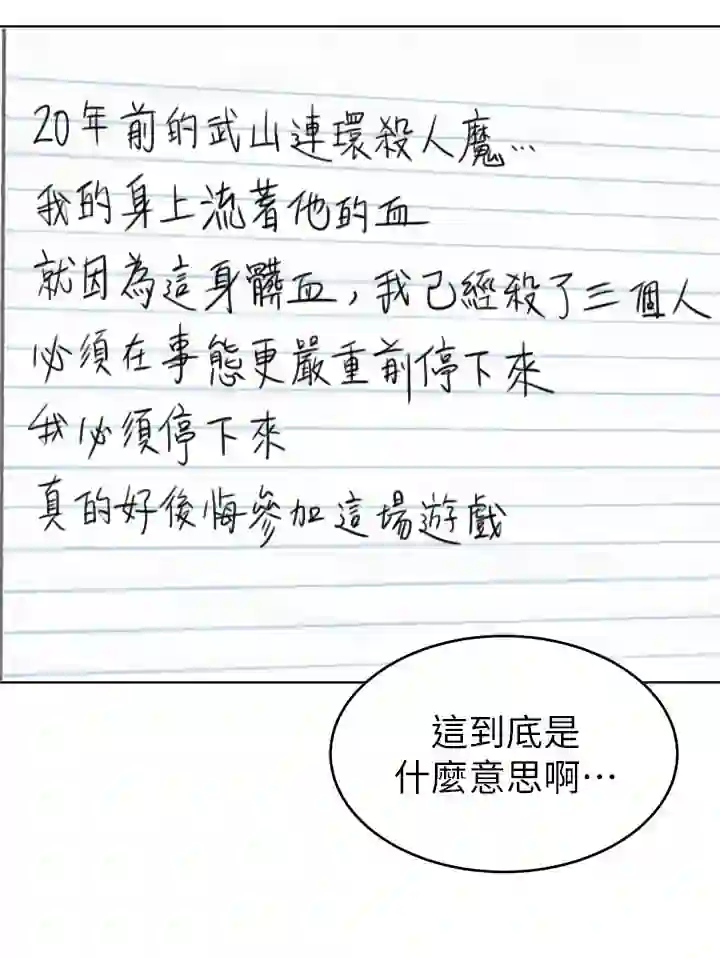 20年前的武山連環殺人魔…
我的身上流著他的血
就因為這身髒血，我已經殺了三個人
必須在事態更嚴重前停下來
我必須停下來
真的好後悔參加這場遊戲
這到底是
什麼意思啊…